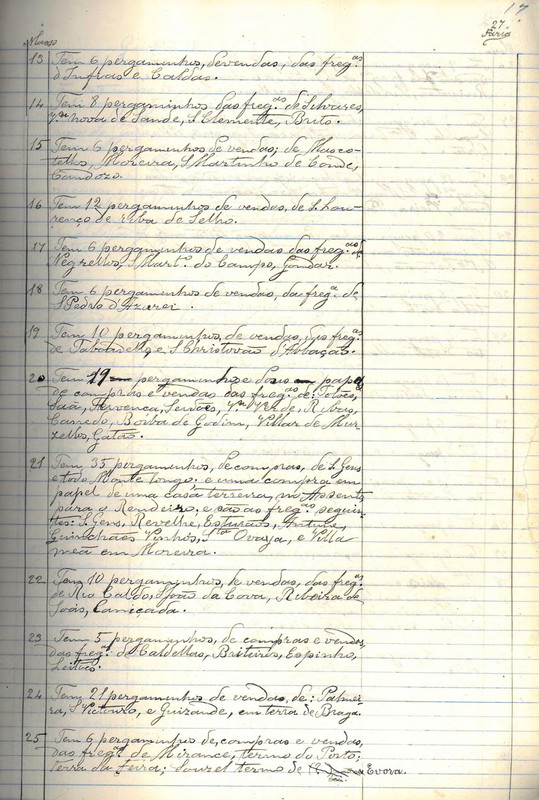 17
27
Maços
13 Tem 6 pergaminhos, de vendas, das freg.as
d'Infias e Caldas.
14 Tem 8 pergaminhos das freg.as de Silvares,
V.ª nova de Sande, S. Clemente, Brito.
15 Tem 6 pergaminhos de vendas; de Masco-
tellos, Moreira, S. Martinho de Conde,
Gandoza.
16 Tem 12 pergaminhos de vendas, de S. Lou-
renço de riba de Selho.
17 Tem 6 pergaminhos de vendas das freg.as de
Negrellos, S. Mart.º do Campo, Gondar.
18 Tem 6 pergaminhos de vendas, da freg.ª de
S. Pedro d'Azurei.
19 Tem 10 pergaminhos, de vendas, das freg.as
de Taboadello, e S. Christovão d'Abbação.
20 Tem 19 pergaminhos e dous papeis
de compras e vendas das freg.as de: Tolões,
Fervença, V.ª Verde, Ribas,
Canedo, Borba de Godim, Villar de Mur-
zellos, Gatão.
21 Tem 35 pergaminhos, de compras, de S. Gens
e todo Monte longo: e uma compra em
papel de uma casa terreira, no Assento
para o Rendeiro; e são as freg.as seguin-
tes: S. Gens, Revelhe, Esturãos, Antime,
Guinchães Vinhós, S.ta Ovaya, e Villa
meã em Moreira.
22 Tem 10 pergaminhos, de vendas, das freg.as
de Rio Caldo, S. João da Cova, Ribeira de
Soás, Caniçada.
23 Tem 5 pergaminhos, de compras e vendas,
das freg.as de Caldellas, Briteiros, Espinho,
Leitões.
24 Tem 21 pergaminhos de vendas, de: Palmei-
ra, S. Victouro, e Guizande, em terra de Braga.
25 Tem 6 pergaminhos de, compras e vendas,
das freg.as de Mirance, termo do Porto;
terra da feira; Souzel termo de Evora.